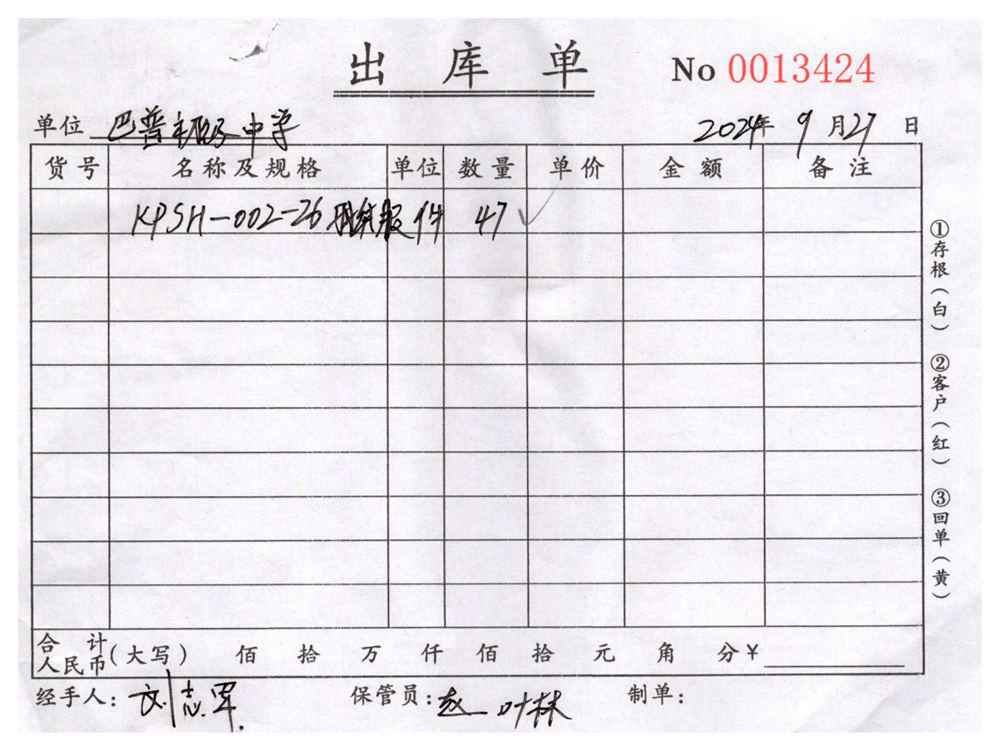 出库单 No 0013424
单位 巴普 中学 2024年 9月27日
货号 名称及规格 单位 数量 单价 金额 备注
KPSH-002-26 训练服 件 47 ✓
合计人民币(大写) 佰 拾 万 仟 佰 拾 元 角 分¥
经手人:刘志军. 保管员:赵一叶林 制单:
①存根(白) ②客户(红) ③回单(黄)